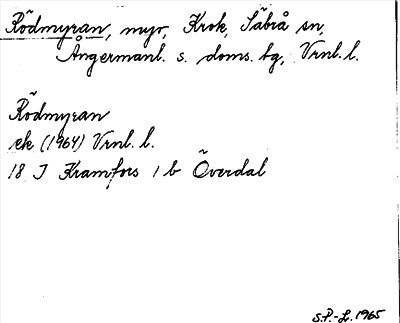 Rödmyran, myr, Krok, Säbrå sn,
Ångermanl. s. doms. tg, Vrnl. l.
Rödmyran
ek (1964) Vrnl. l.
18 J Kramfors 1 b Överdal
S.P.-L. 1965